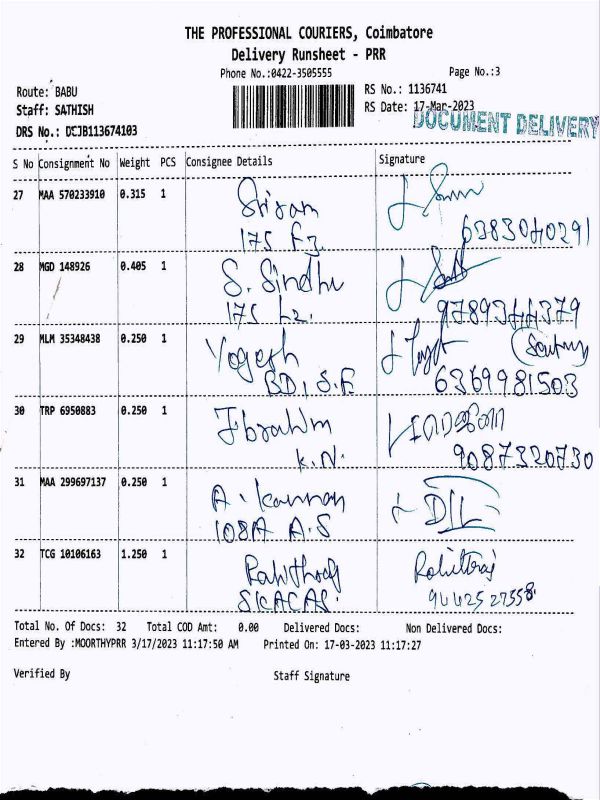 THE PROFESSIONAL COURIERS, Coimbatore
Delivery Runsheet - PRR
Phone No.:0422-3505555
Page No.:3
Route: BABU
RS No.: 1136741
Staff: SATHISH
RS Date: 17-Mar-2023
DOCUMENT DELIVERY
DRS No.: DCJB113674103
S No Consignment No Weight PCS Consignee Details Signature
27 MAA 570233910 0.315 1 Sriram
175 F3. 6383040291
28 MGD 148926 0.405 1 S. Sindhu
175 L2. 9789344379
29 MLM 35348438 0.250 1 Yogesh
BD, S.F 6369981503
30 TRP 6950883 0.250 1 Ibrahim
K.N. 9087320730
31 MAA 299697137 0.250 1 A. Kannan
108A A.S
32 TCG 10106163 1.250 1
SKACAS.
Total No. Of Docs: 32 Total COD Amt: 0.00 Delivered Docs: Non Delivered Docs:
Entered By :MOORTHYPRR 3/17/2023 11:17:50 AM Printed On: 17-03-2023 11:17:27
Verified By Staff Signature